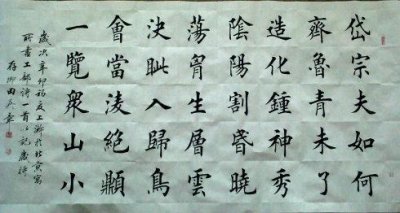 岱宗夫如何
齊魯青未了
造化鍾神秀
陰陽割昏曉
蕩胷生層雲
決眥入歸鳥
會當淩絕顚
一覽衆山小
歲次辛卯 於北京寫
書工部詩一首以記
田英章